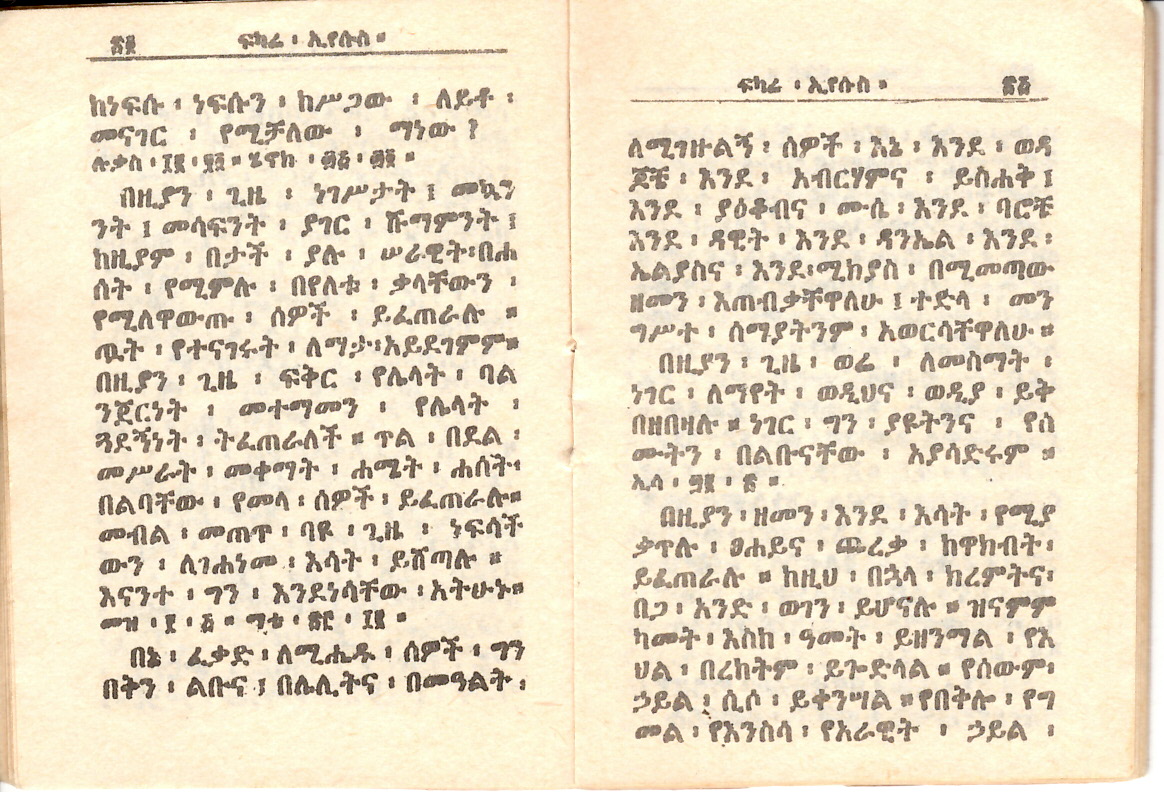 ፳፬ ፍካሬ ፡ ኢየሱስ ።
ከነፍሱ ፡ ነፍሱን ፡ ከሥጋው ፡ ለይቶ ፡
መናገር ፡ የሚቻለው ፡ ማነው ?
ሉቃስ ፡ ፲፪ ፡
በዚያን ፡ ጊዜ ፡ ነገሥታት ፤ መኳን
ንት ፤ መሳፍንት ፡ ያገር ፡ ሹማምንት ፤
ከዚያም ፡ በታች ፡ ያሉ ፡ ሠራዊት፡በሐ
ሰት ፡ የሚምሉ ፡ በየለቱ ፡ ቃላቸውን ፡
የሚለዋውጡ ፡ ሰዎች ፡ ይፈጠራሉ ።
ጧት ፡ የተናገሩት ፡ ለማታ፡አይደገምም።
በዚያን ፡ ጊዜ ፡ ፍቅር ፡ የሌላት ፡ ባል
ንጀርነት ፡ መተማመን ፡ የሌላት ፡
ጓደኝነት ፡ ትፈጠራለች ። ጥል ፡ በደል ፡
መሥራት ፡ መቀማት ፡ ሐሜት ፡ ሐሰት፡
በልባቸው ፡ የመላ ፡ ሰዎች ፡ ይፈጠራሉ።
መብል ፡ መጠጥ ፡ ባዩ ፡ ጊዜ ፡ ነፍሳቸ
ውን ፡ ለገሐነመ ፡ እሳት ፡ ይሸጣሉ ።
እናንተ ፡ ግን ፡ እንደነሳቸው ፡ አትሁኑ።
መዝ ፡ ፲ ፡ ፭ ። ማቴ ፡
በኔ ፡ ፈቃድ ፡ ለሚሔዱ ፡ ሰዎች ፡ ግን
በቅን ፡ ልቡና ፤ በሌሊትና ፡ በመዓልት ፡
ፍካሬ ፡ ኢየሱስ ። ፳፭
ለሚገዙልኝ ፡ ሰዎች ፡ እኔ ፡ እንደ ፡ ወዳ
ጆቼ ፡ እንደ ፡ አብርሃምና ፡ ይስሐቅ ፤
እንደ ፡ ያዕቆብና ፡ ሙሴ ፡ እንደ ፡ ባሮቼ
እንደ ፡ ዳዊት ፡ እንደ ፡ ዳንኤል ፡ እንደ ፡
ኤልያስና ፡ እንደ፡ሚክያስ ፡ በሚመጣው
ዘመን ፡ እጠብቃቸዋለሁ ፤ ተድላ ፡ መን
ግሥተ ፡ ሰማያትንም ፡ አወርሳቸዋለሁ ።
በዚያን ፡ ጊዜ ፡ ወሬ ፡ ለመስማት ፡
ነገር ፡ ለማየት ፡ ወዲህና ፡ ወዲያ ፡ ይቅ
በዘበዛሉ ። ነገር ፡ ግን ፡ ያዩትንና ፡ የስ
ሙትን ፡ በልቡናቸው ፡ አያሳድሩም ።
ኢሳ ፡
በዚያን ፡ ዘመን ፡ እንደ ፡ እሳት ፡ የሚያ
ቃጥሉ ፡ ፀሐይና ፡ ጨረቃ ፡ ከዋክብት፡
ይፈጠራሉ ። ከዚህ ፡ በኋላ ፡ ክረምትና፡
በጋ ፡ አንድ ፡ ወገን ፡ ይሆናሉ ። ዝናምም
ካመት ፡ እስከ ፡ ዓመት ፡ ይዘንማል ፡ የእ
ህል ፡ በረከትም ፡ ይጐድላል ። የሰውም፡
ኃይል ፡ ሲሶ ፡ ይቀንሣል ። የበቅሎ ፡ የግ
መል ፡ የእንስሳ ፡ የአራዊት ፡ ኃይል ፡